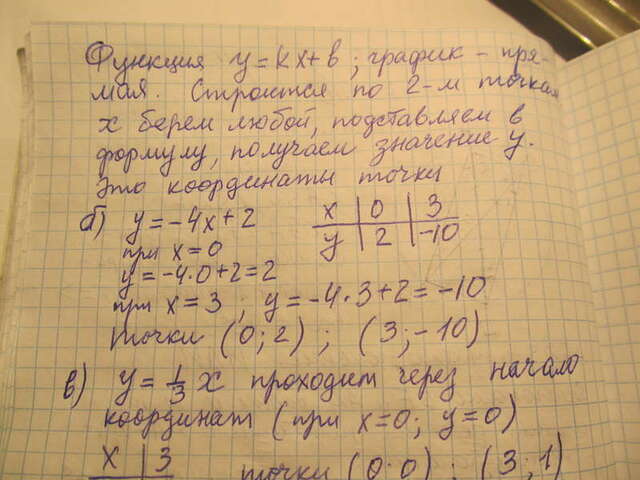 Функция y = kx + b ; график - пря-
мая. Строится по 2-м точкам
x берем любой, подставляем в
формулу, получаем значение y.
Это координаты точки
б) y = -4x + 2
x | 0 | 3
y | 2 | -10
при x = 0
y = -4·0 + 2 = 2
при x = 3 ; y = -4·3 + 2 = -10
точки (0; 2) ; (3; -10)
в) y = 1/3 x проходит через начало
координат (при x=0; y=0)
x | 3
точки (0; 0) ; (3; 1)